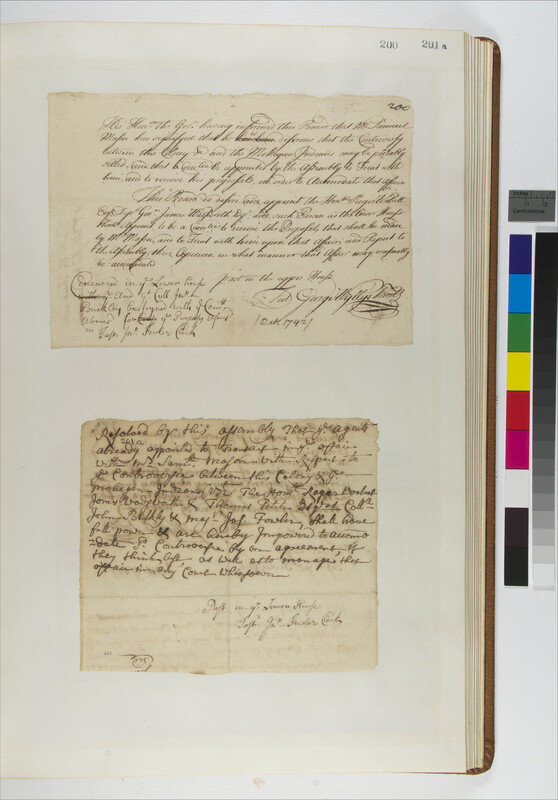 200 201a
200
His Hon.r the Gov.r having informed this Board that Mr Samuel
Mason has signified that he desires that the Controversy
between this Colony & and the Mohegan Indians may be peaceably
settled, and that a Com.tee be appointed by the Assembly to Treat with
him, and to receive his proposals, in order to Accomodate that Affair
This Board do desire and appoint the Hon.ble
James Wadsworth Esq.r with such Person as the Lower House
shall Appoint to be a Com.tee to receive the Proposals that shall be made
by Mr Mason, and to Treat with him upon that Affair, and Report to
the Assembly, their Opinion in what manner that Affair may
be accomodated
Past in the upper House
Test George Wyllys Secret.y
(Oct. 1742)
Concurred in y.e Lower House
And y.t Coll Jn.o
Bulkley be Joyned with y.e Com.tee
above for y.e Purpose
Test Jn.o Fowler Clerk
Resolved by this assembly That y.e agents
201a
already appointed to transact in y.e affair
with Mr. Sam.ll Mason with Respect to
y.e Controversie between this Colony & y.e
mohegan Indians viz The Hon.ll Roger Wolcott
James Wadsworth & Thomas Fitch Esq.rs Coll.o
John Bulkly & maj.r Jos Fowler, shall have
full power & are hereby Impowered to accomo
=date s.d Controversie by an agreement if
they think best as well as to manage that
affair in any Court whatsoever
Past in y.e Lower House
Test Jn.o Fowler Clerk